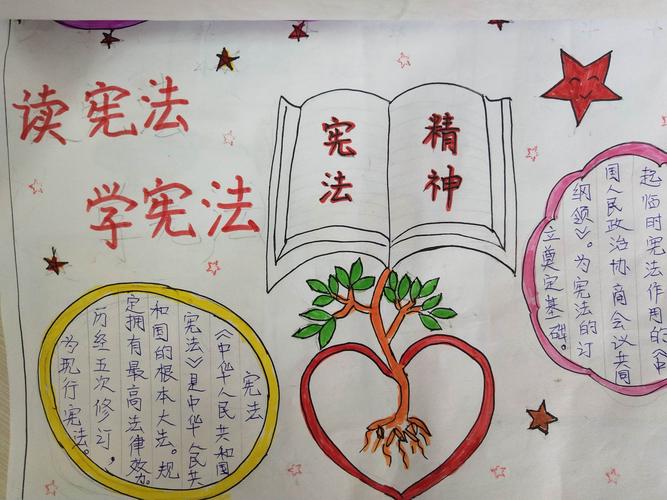 读宪法
学宪法
宪法
精神
宪法
《中华人民共和国
宪法》是中华人民共
和国的根本大法。规
定拥有最高法律效力。
历经五次修订，
为现行宪法。
起临时宪法作用的《中
国人民政治协商会议共同
纲领》。为宪法的订
立奠定基础。